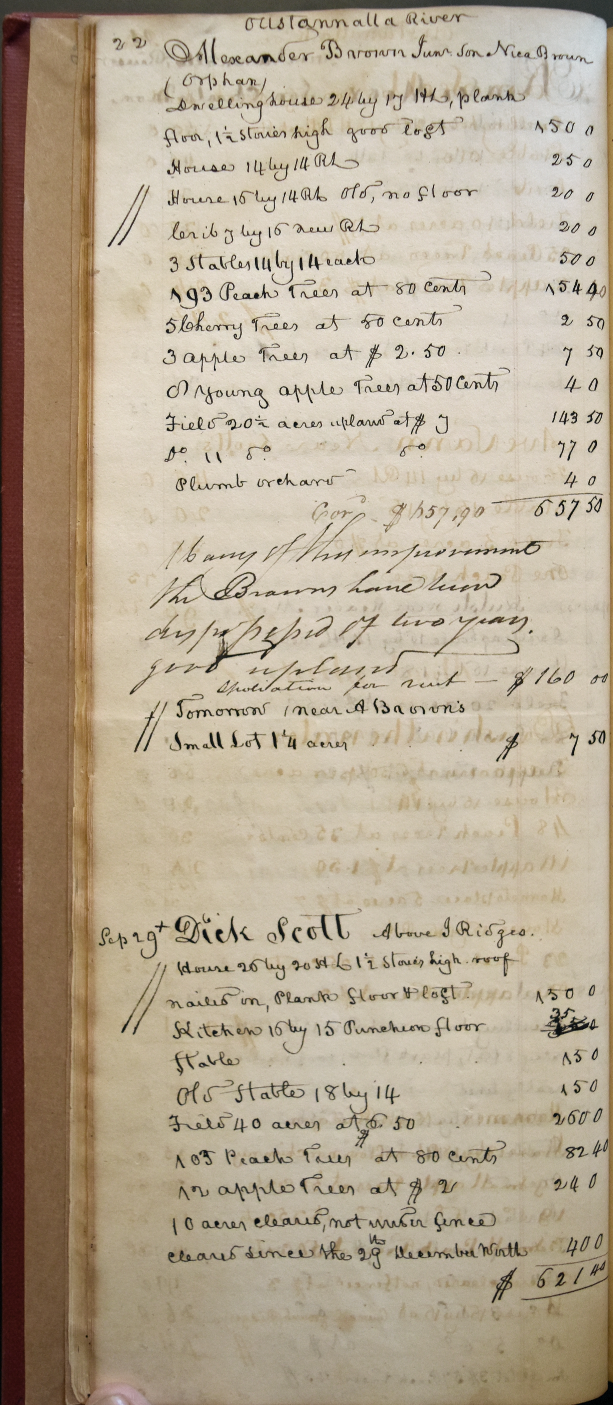 Oustannalla River
22 Alexander Brown Junr Son Nica Brown
(Orphan)
Dwelling house 24 by 17 Hl, plank
floor, 1½ stories high good loft 150 0
House 14 by 14 Rl 25 0
// House 16 by 14 Rl Old, no floor 20 0
Crib 7 by 16 new Rl 20 0
3 Stables 14 by 14 each 50 0
193 Peach Trees at 80 cents 154 40
5 Cherry Trees at 50 cents 2 50
3 apple Trees at $ 2.50 7 50
8 Young apple Trees at 50 cents 4 0
Field 20½ acres upland at $ 7 143 50
Do 11 do do 77 0
Plumb orchard 4 0
Cord $ 657.90 657 50
16 acres of this improvement
the Browns have been
dispossessed of two years.
good upland
spoliation for rent — $ 160 00
// Tomorrow (near A Brown's
Small Lot 1¼ acres $ 7 50
Sep 29t Dick Scott Above J Ridges.
// House 26 by 20 Hl 1½ Stories high roof
nailed in, Plank floor & loft 150 0
Kitchen 16 by 15 Puncheon floor 35
Stable 15 0
Old Stable 18 by 14 15 0
Field 40 acres at $ 6 50 260 0
103 Peach Trees at 80 cents 82 40
12 apple Trees at $ 2 24 0
10 acres cleared, not under fence
cleared since the 29th December Worth 40 0
$ 621 40